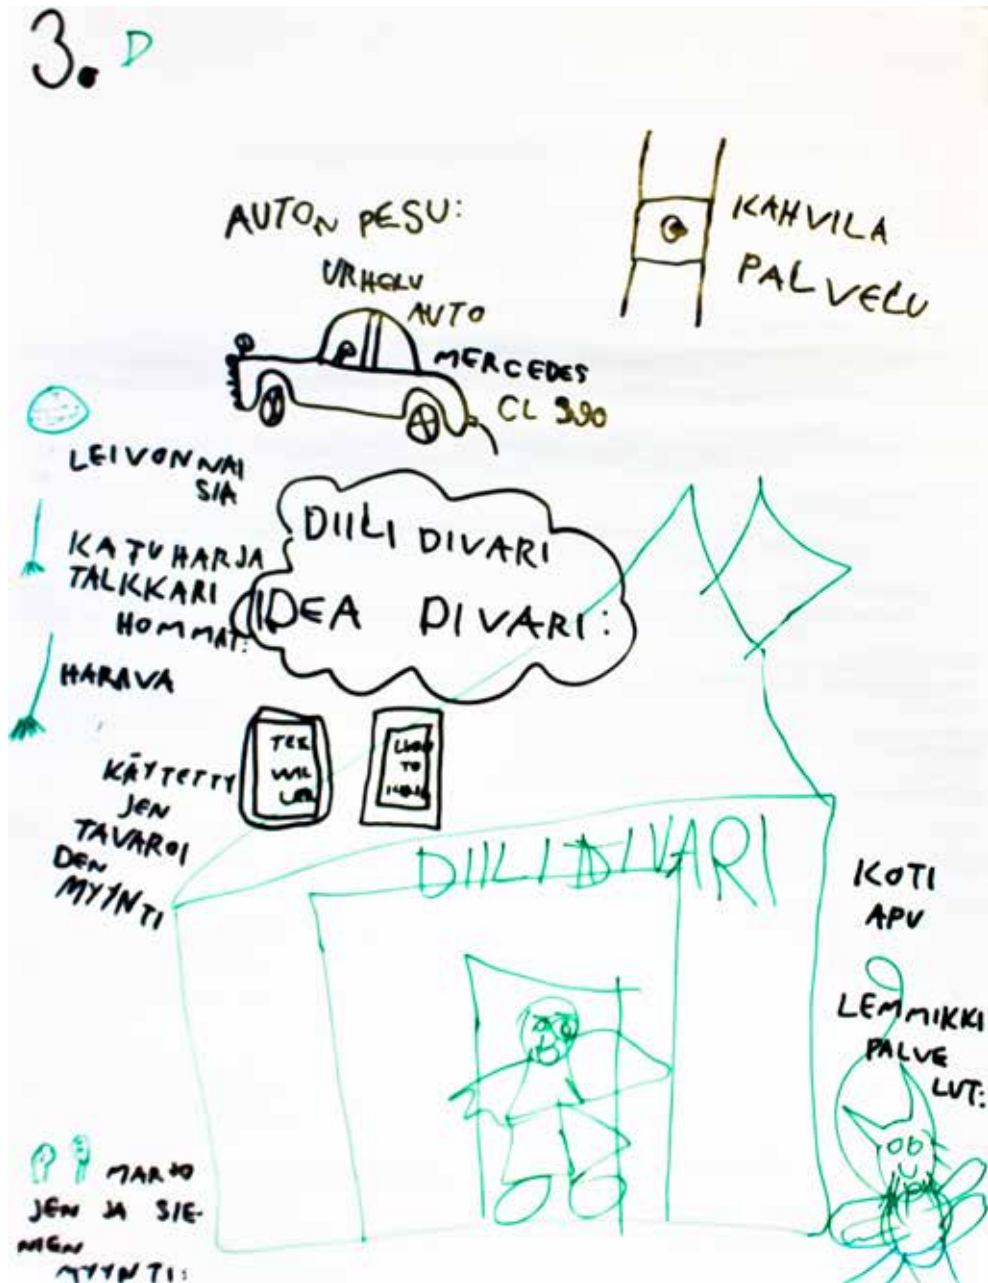 3. D
AUTON PESU:
URHELU
AUTO
MERCEDES
CL 990
KAHVILA
PALVELU
LEIVONNAI
SIA
KATUHARJA
TALKKARI
HOMMAT:
HARAVA
DIILI DIVARI
IDEA DIVARI:
KÄYTETTY
JEN
TAVAROI
DEN
MYYNTI
TEX
WIL
LER
TO
DIILI DIVARI
KOTI
APU
LEMMIKKI
PALVE
LUT:
MARJO
JEN JA SIE-
NIEN
MYYNTI: